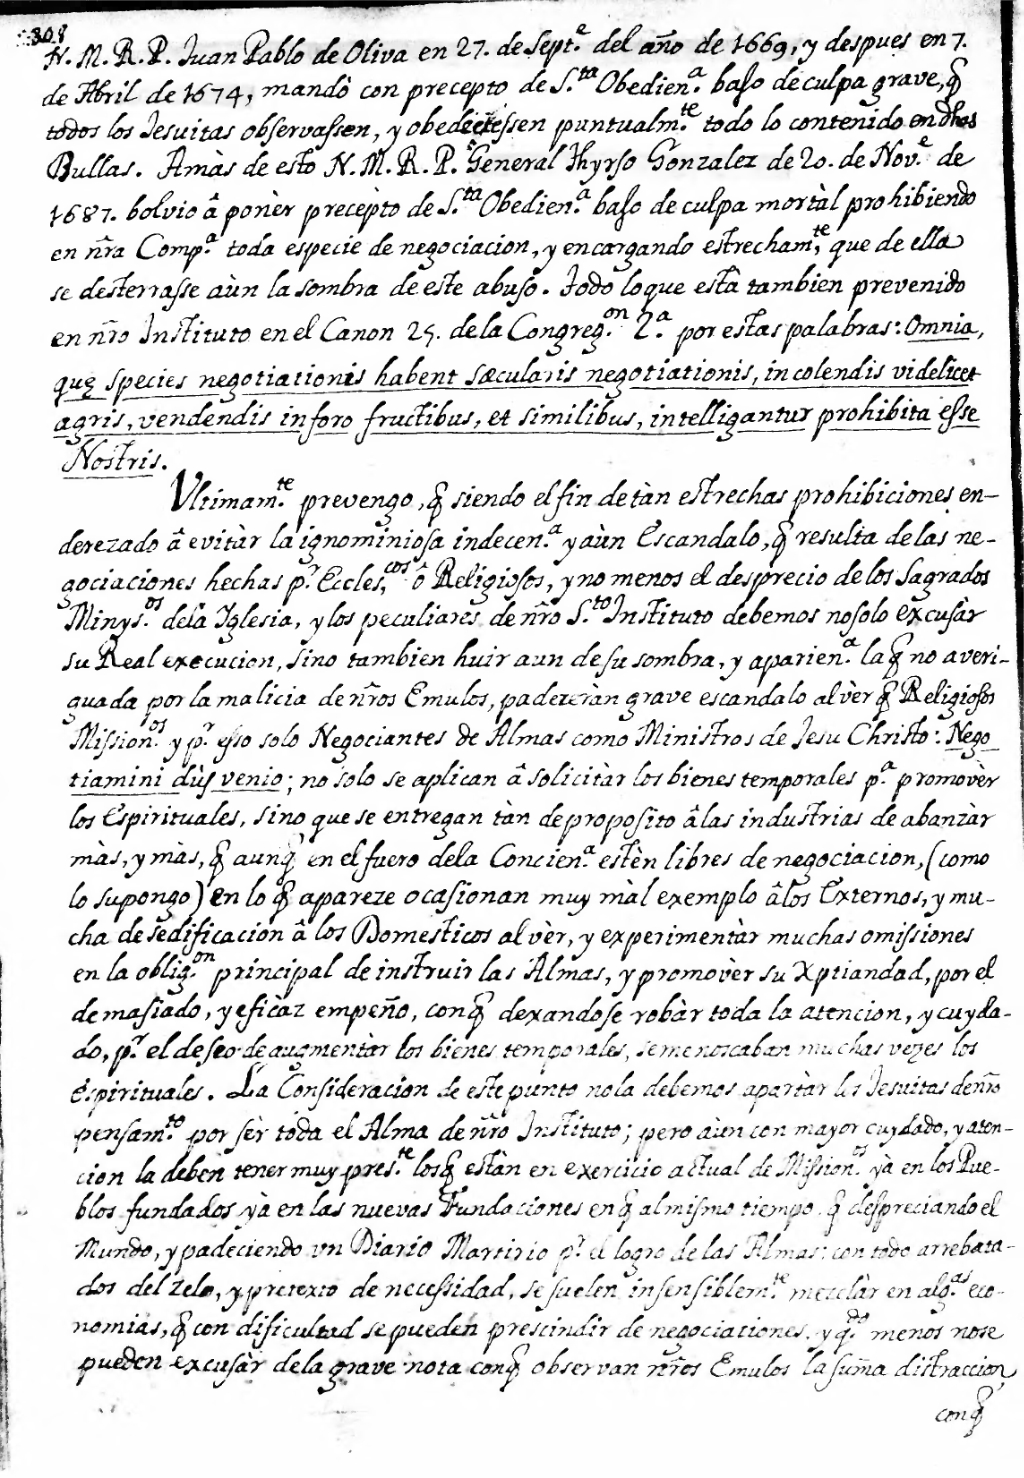 308
N. M. R. P. Juan Pablo de Oliva en 27. de Sept.e del año de 1669, y despues en 7.
de Abril de 1674, mandò con precepto de S.ta Obedien.a baſo de culpa grave, q̃
todos los Jesuitas observaſsen, y obedecieſsen puntualm.te todo lo contenido en dhas
Bullas. Amàs de esto N. M. R. P. General Thyrso Gonzalez de 20. de Nov.e de
1687. bolvio â ponèr precèpto de S.ta Obedien.a baſo de culpa mortàl prohibiendo
en nr̃a Comp.a toda especie de negociacion, y encargando estrecham.te, que de ella
se desterraſse aùn la sombra de este abuſo. Todo lo que està tambien prevenido
en nr̃o Instituto en el Canon 25. de la Congreg.on 2.a por estas palabras: Omnia,
quę species negotiationis habent sæcularis negotiationis, in colendis videlicet
agris, vendendis in foro fructibus, et similibus, intelligantur prohibita eſse
Nostris.
Ultimam.te prevengo, q̃ siendo el fin de tàn estrechas prohibiciones en-
derezado â evitàr la ignominioſa indecen.a y aùn Escandalo, q̃ resulta de las ne-
gociaciones hechas p.r Eccles.cos ô Religioſos, y no menos el desprecio de los Sagrados
Minys.os de la Iglesia, y los peculiares de nr̃o S.to Instituto debemos no solo excuſàr
su Real execucion, sino tambien huir aun de su sombra, y aparien.a la q̃ no averi-
guada por la malicia de nr̃os Emulos, padezeràn grave escandalo al vèr q̃ Religioſos
Miſsion.os y p.r eſso solo Negociantes de Almas como Ministros de Jesu Christo: Nego
tiamini dùm venio; no solo se aplican â solicitàr los bienes temporales p.a promovèr
los Espirituales, sino que se entregan tàn de propoſito â las industrias de abanzàr
màs, y màs, q̃ aunq̃ en el fuero de la Concien.a estèn libres de negociacion, (como
lo supongo) en lo q̃ apareze ocaſionan muy màl exemplo â los Externos, y mu-
cha desedificacion â los Domesticos al vèr, y experimentàr muchas omiſsiones
en la oblig.on principal de instruir las Almas, y promovèr su Xptiandad, por el
demaſiado, y eficàz empeño, conq̃ dexandose robàr toda la atencion, y cuyda-
do, p.r el deseo de augmentàr los bienes temporales, se menoscaban muchas vezes los
espirituales. La Consideracion de este punto no la debemos apartàr los Jesuitas de nr̃o
pensam.to por sèr toda el Alma de nr̃o Instituto; pero aùn con mayor cuydado, y aten-
cion la deben tener muy pres.te los q̃ estàn en exercicio actual de Miſsion.os yà en los Pue-
blos fundados yà en las nuevas Fundaciones en q̃ al miſmo tiempo, q̃ despreciando el
Mundo, y padeciendo un Diario Martirio p.r el logro de las Almas; con todo arrebata-
dos del zelo, y pretexto de neceſsidad, se suelen insensiblem.te mezclàr en alg.as eco-
nomias, q̃ con dificultad se pueden prescindir de negociaciones, y q.do menos no se
pueden excusàr de la grave nota conq̃ observan nr̃os Emulos la sum̃a distraccion,
conq̃